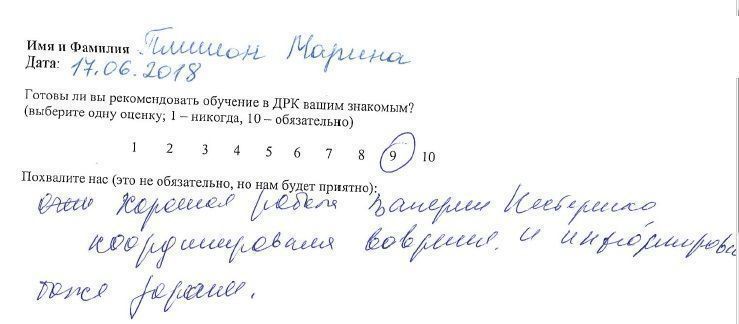 Имя и Фамилия Плишон Марина
Дата: 17.06.2018
Готовы ли вы рекомендовать обучение в ДРК вашим знакомым?
(выберите одну оценку; 1 – никогда, 10 – обязательно)
1 2 3 4 5 6 7 8 9 10
Похвалите нас (это не обязательно, но нам будет приятно):
хорошая работа Валерии Нестеренко
координировала вовремя и информирова
тоже заранее.